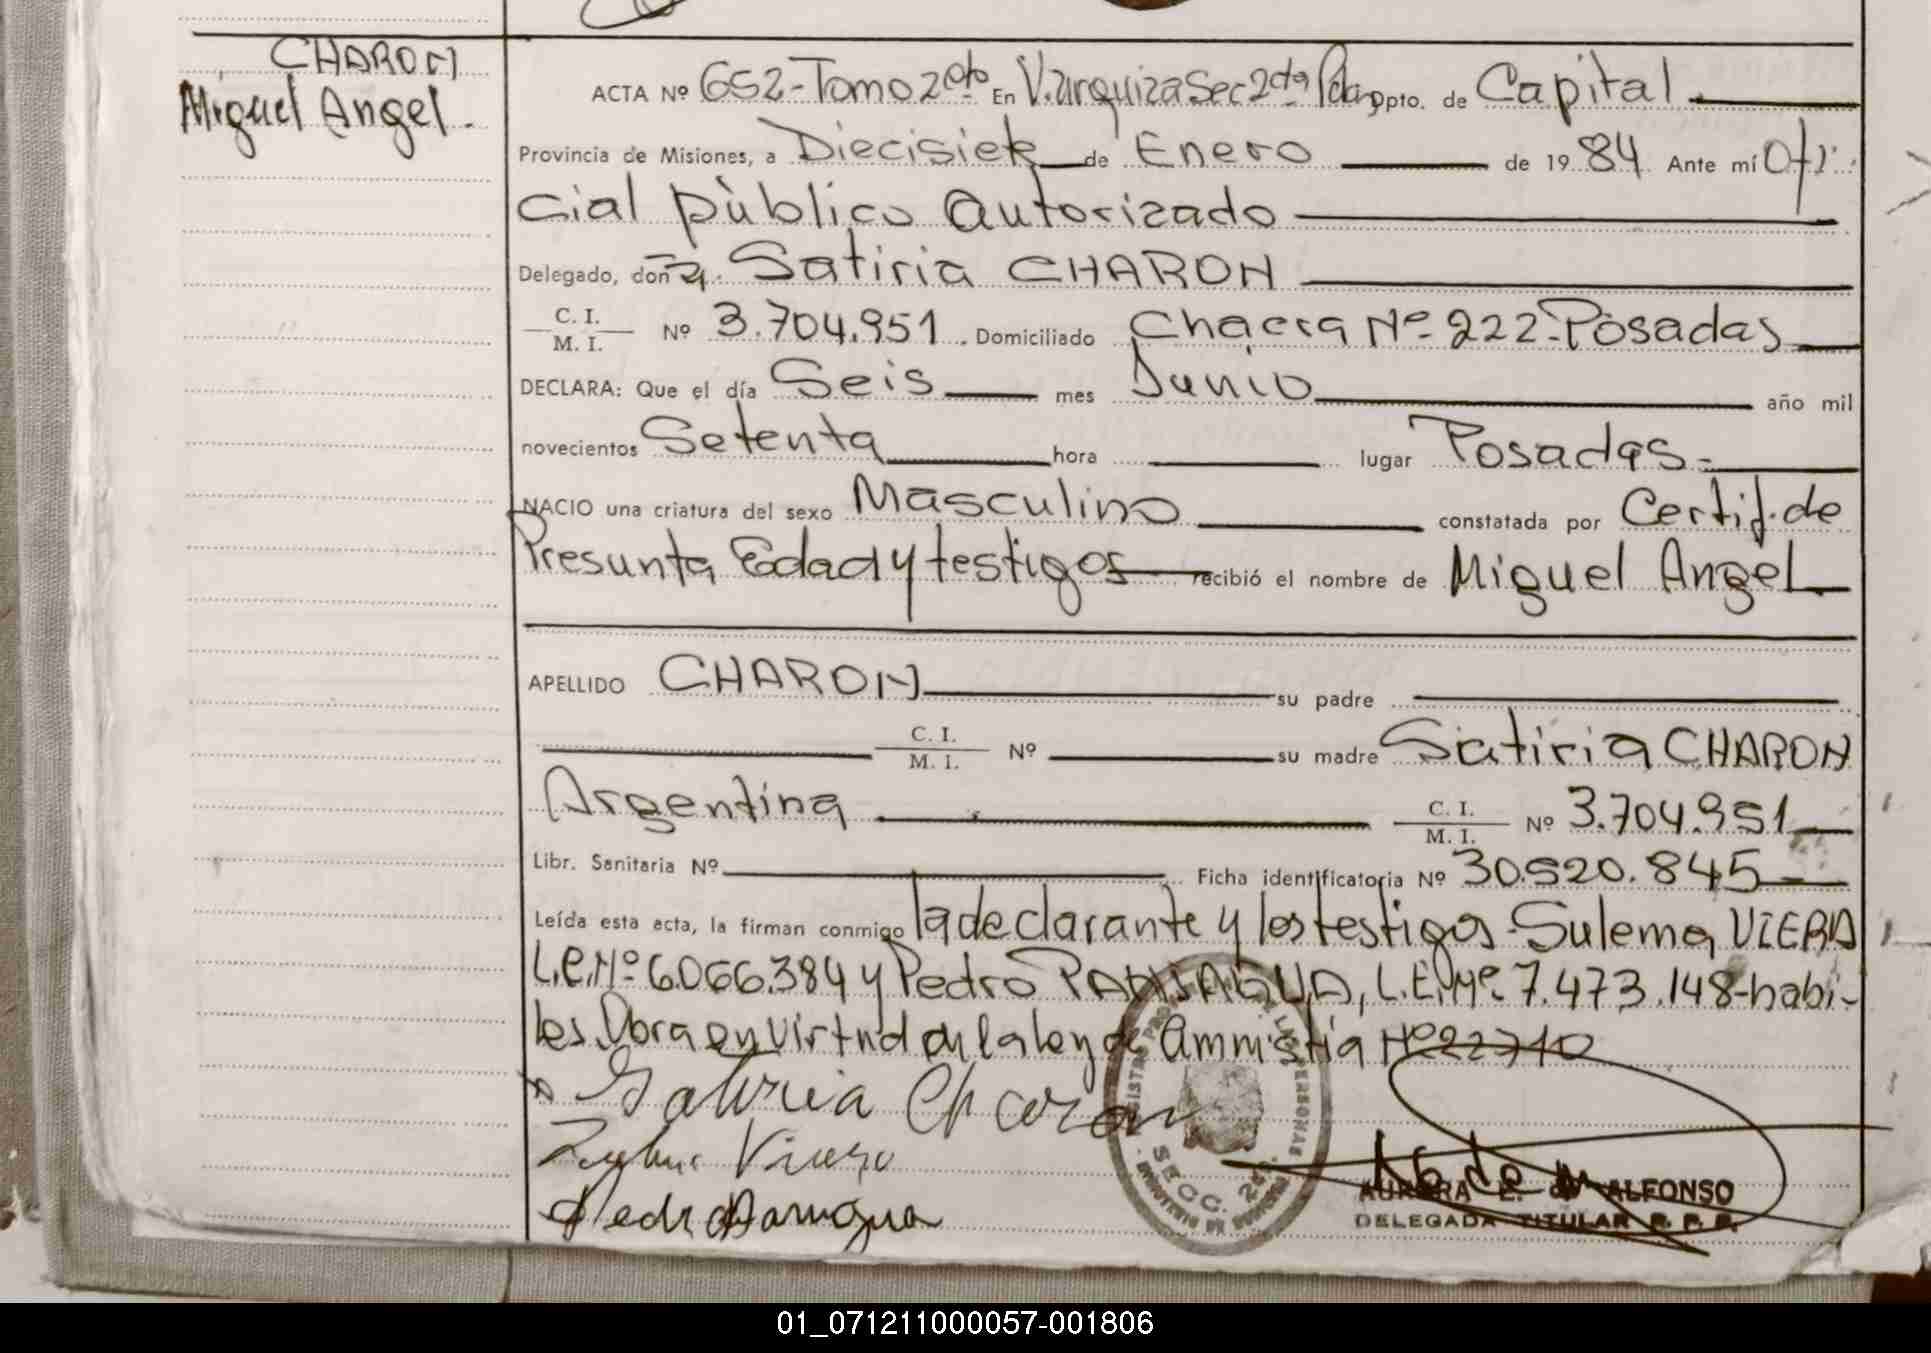 CHARON
Miguel Angel.
ACTA Nº 652-Tomo 2do En V. Urquiza Sec 2da Pdas Dpto. de Capital
Provincia de Misiones, a Diecisiete de Enero de 1984 Ante mí Ofi-
cial público autorizado
Delegado, doña. Satiria CHARON
C. I.
M. I.
Nº 3.704.951. Domiciliado Chacra Nº 222-Posadas
DECLARA: Que el día Seis mes Junio año mil
novecientos Setenta hora lugar Posadas-
NACIO una criatura del sexo Masculino constatada por Certif. de
Presunta Edad y testigos recibió el nombre de Miguel Angel
APELLIDO CHARON su padre
C. I.
M. I.
Nº su madre Satiria CHARON
Argentina C. I.
M. I.
Nº 3.704.951
Libr. Sanitaria Nº Ficha identificatoria Nº 30.520.845
Leída esta acta, la firman conmigo la declarante y los testigos Sulema VIERA
L.C. Nº 6.066.384 y Pedro PANIAGUA, L.E. Nº 7.473.148-habi-
les. Obra en virtud de la ley de Ammistia Nº 22710
Satiria Charon
Viera
Pedro Paniagua
SECC. 2da.
AURORA E. de ALFONSO
DELEGADA TITULAR R. P. P.
01_071211000057-001806